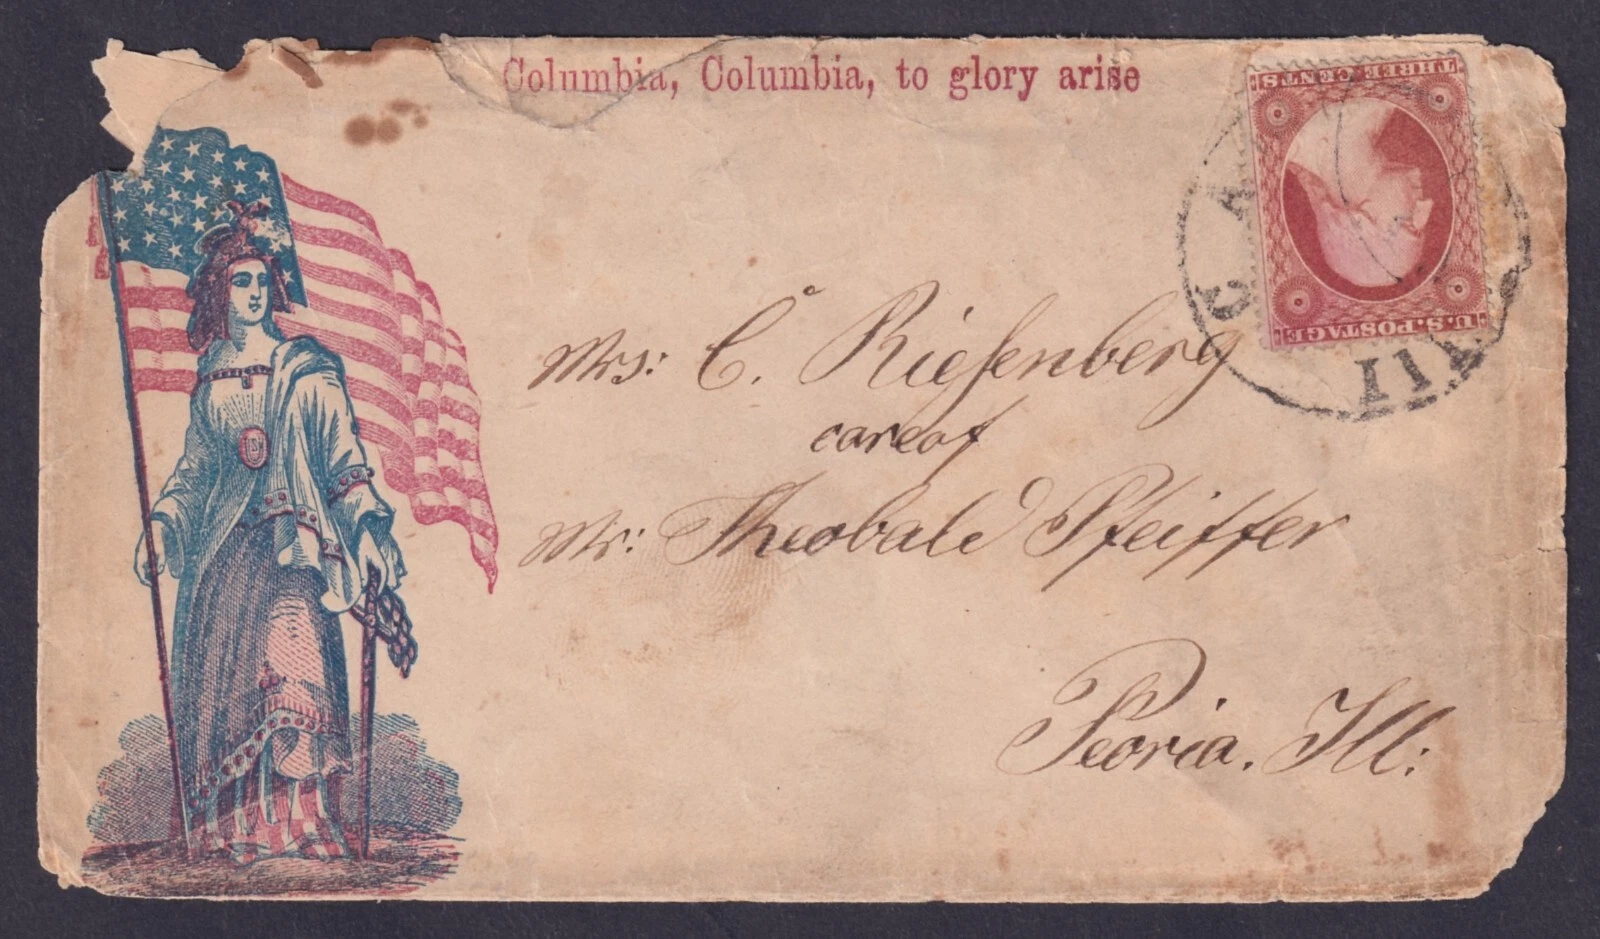 Columbia, Columbia, to glory arise
THREE CENTS
U.S. POSTAGE
CA
Ill
Mrs: C. Riesenberg
care of
Mr: Theobald Pfeiffer
Peoria. Ill: